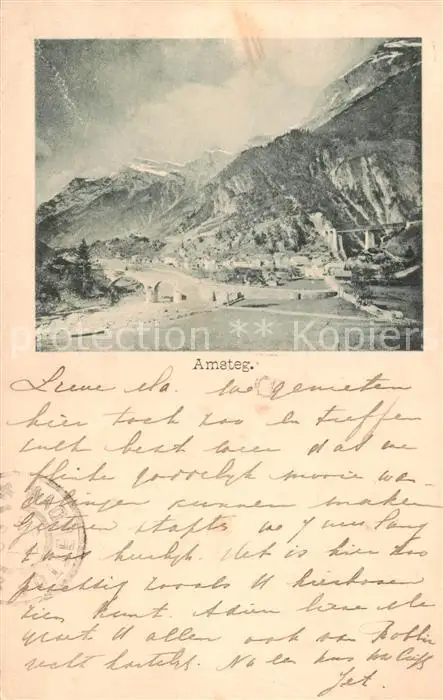 Amsteg.
Lieve Ma. We genieten
hier toch zoo en treffen
zulk best weer dat we
flinke goddelijk mooie wan-
delingen kunnen maken
Gisteren stapten we 7 uur lang
't was heerlijk. Het is hier zoo
prachtig zooals U hierboven
zien kunt. Adieu lieve Ma
groet U allen ook van Bobbie
recht hartelijk.
Jet.